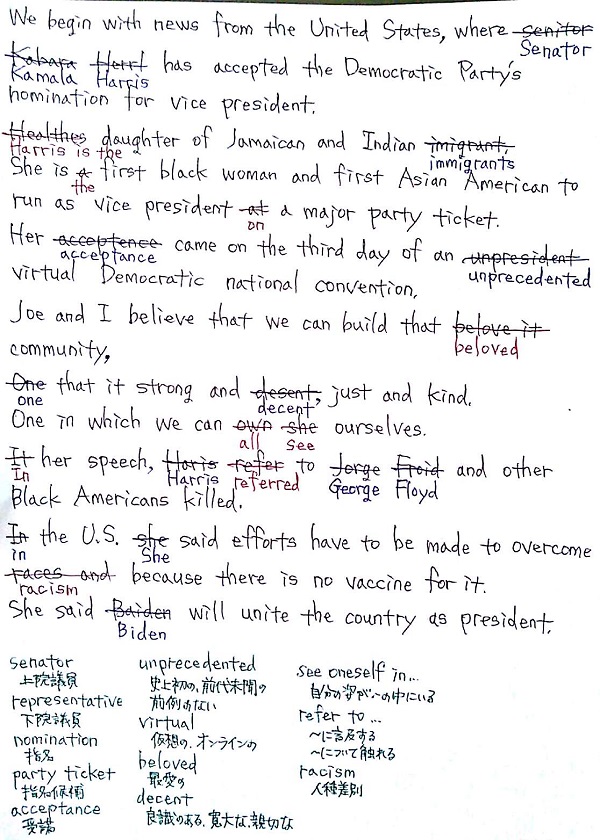 We begin with news from the United States, where senitor
Senator
Kabara Herrl has accepted the Democratic Party's
Kamala Harris
nomination for vice president.
Healthes daughter of Jamaican and Indian imigrant.
Harris is the immigrants
She is a first black woman and first Asian American to
the
run as vice president at a major party ticket.
on
Her acceptence came on the third day of an unpresident
acceptance unprecedented
virtual Democratic national convention.
Joe and I believe that we can build that belove it
beloved
community,
One that it strong and desent, just and kind.
one decent
One in which we can own she ourselves.
all see
It her speech, Haris refer to Jorge Froid and other
In Harris referred George Floyd
Black Americans killed.
In the U.S. she said efforts have to be made to overcome
in She
races and because there is no vaccine for it.
racism
She said Baiden will unite the country as president.
Biden
senator
上院議員
representative
下院議員
nomination
指名
party ticket
指名候補
acceptance
受諾
unprecedented
史上初の、前代未聞の
前例のない
virtual
仮想の、オンラインの
beloved
最愛の
decent
良識のある、寛大な、親切な
see oneself in...
自分の姿が〜の中にいる
refer to ...
〜に言及する
〜について触れる
racism
人種差別